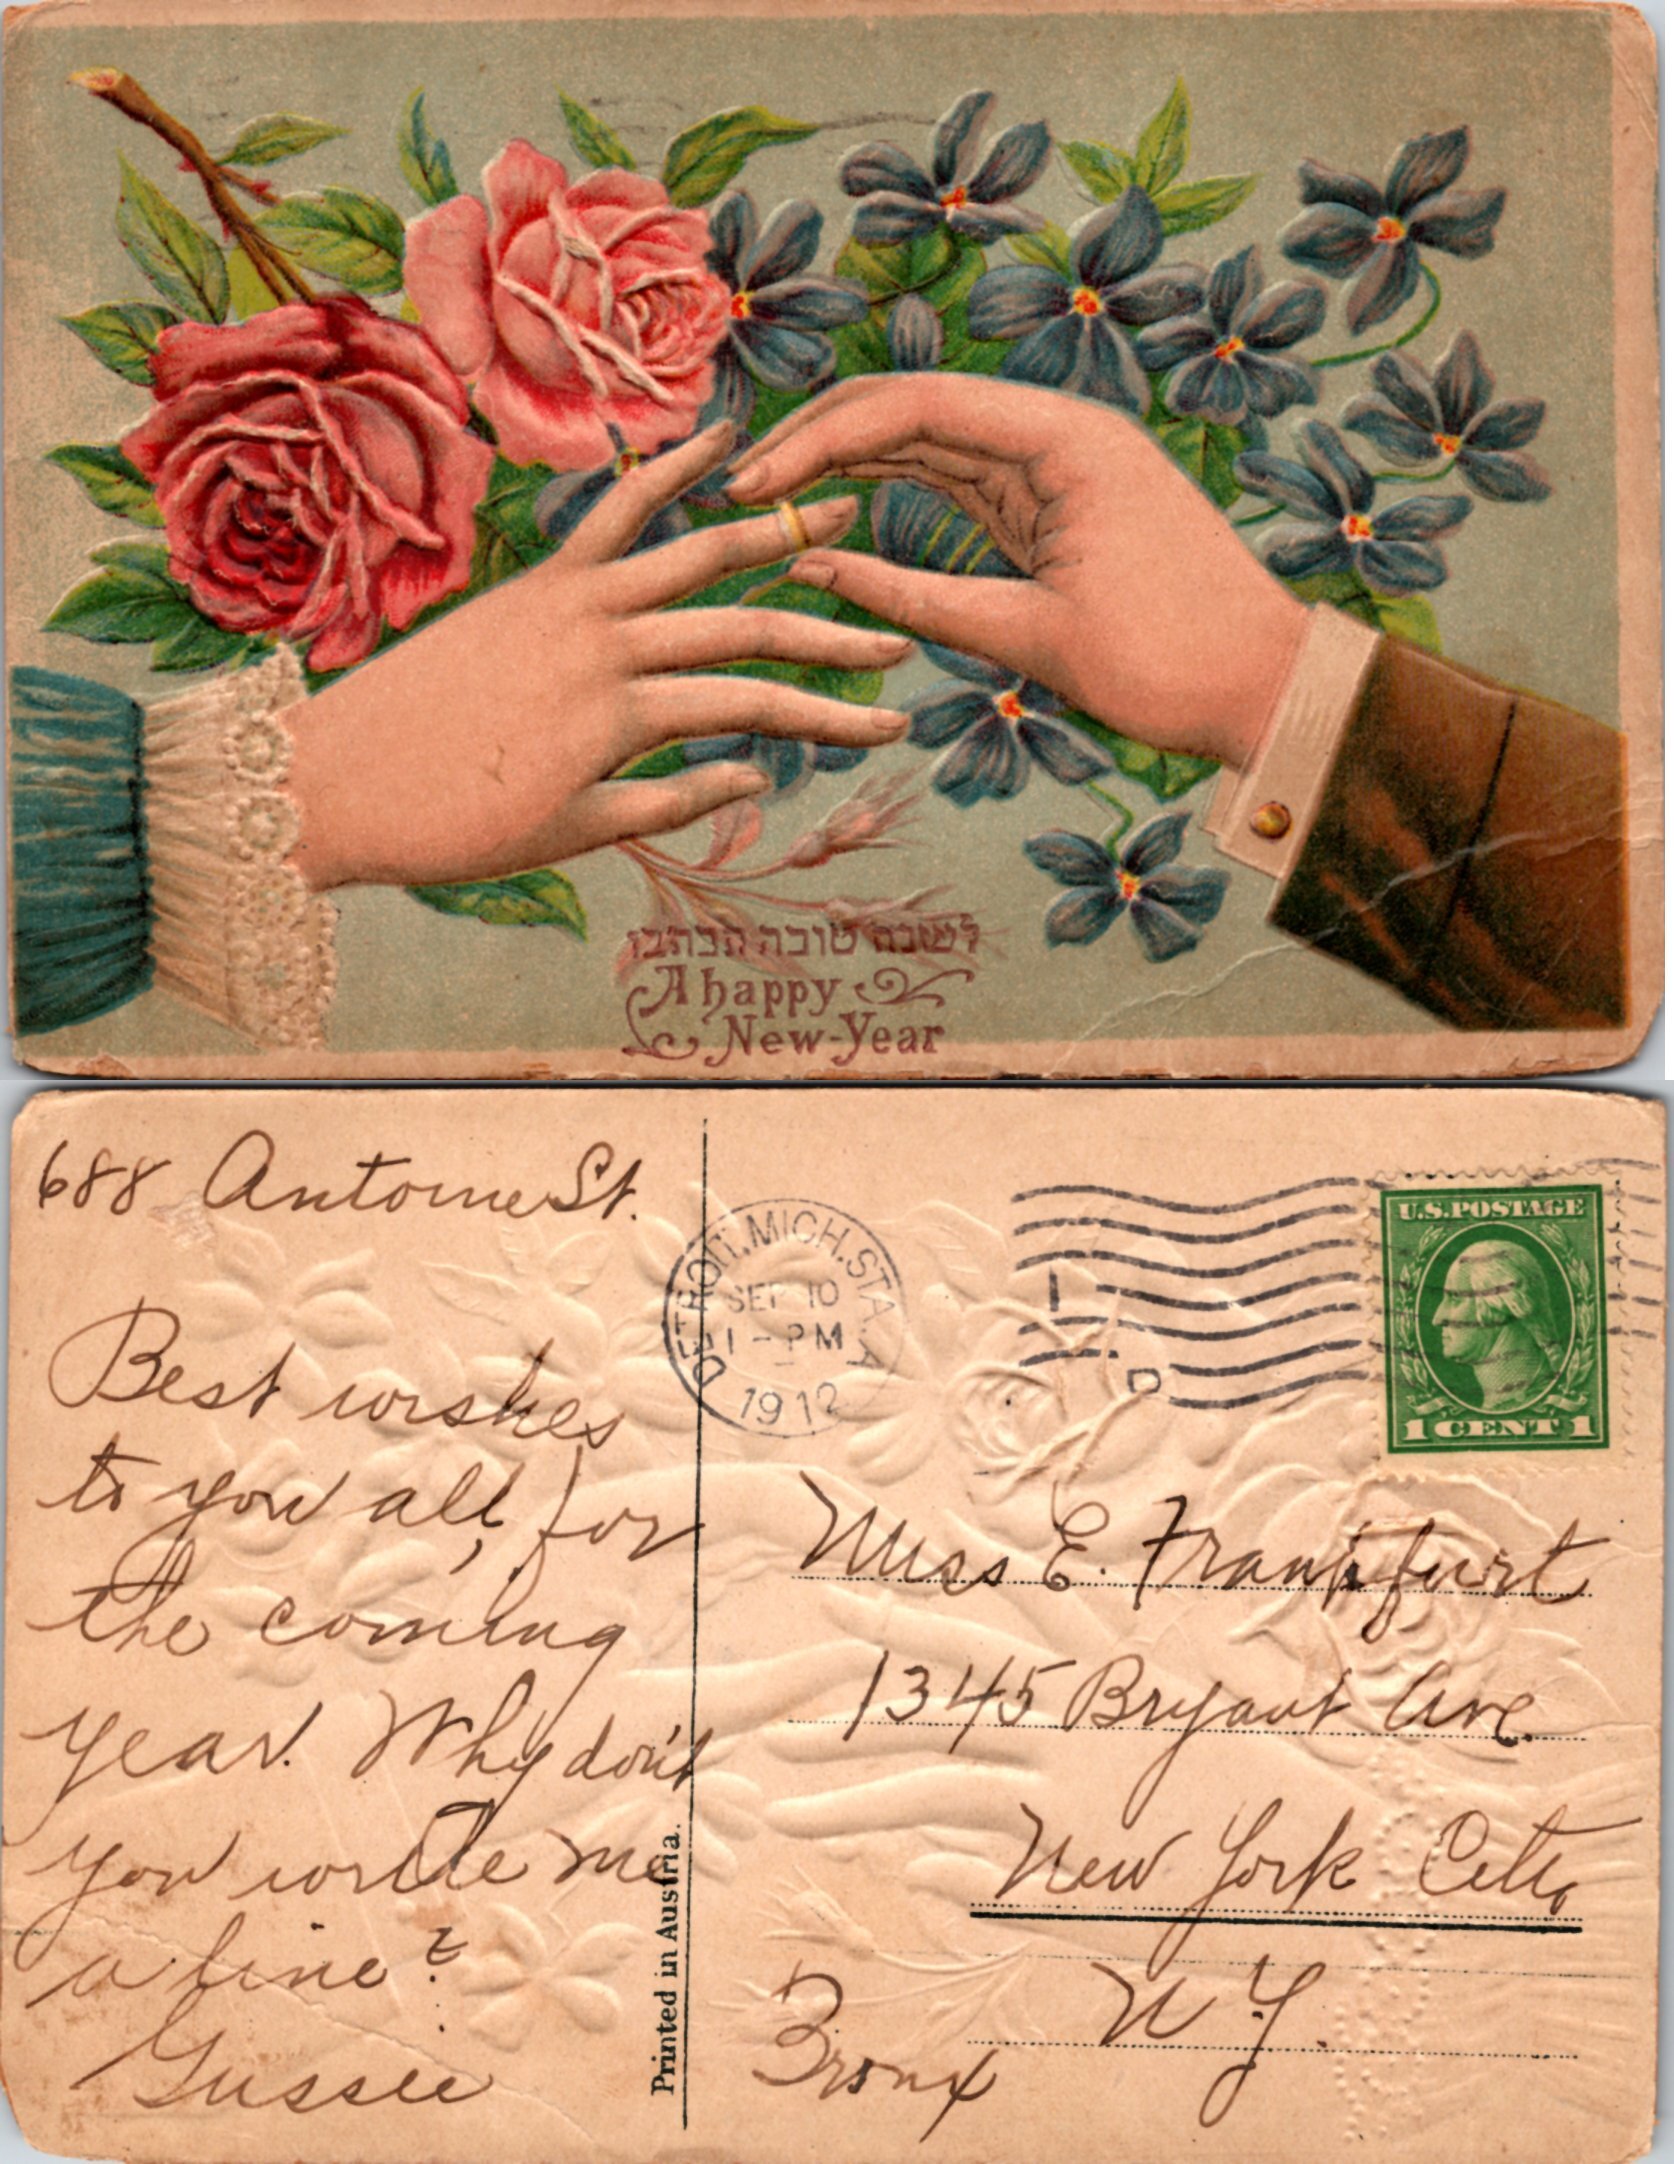 לשנה טובה תכתבו
A happy
New-Year
688 Antoine St.
Best wishes
to you all, for
the coming
year. Why don't
you write me
a line?
Gussie
Printed in Austria.
DETROIT, MICH. STA. A
SEP 10
1 - PM
1912
U.S. POSTAGE
1 CENT 1
Miss E. Frankfurt
1345 Bryant Ave.
New York City
N. Y.
Bronx